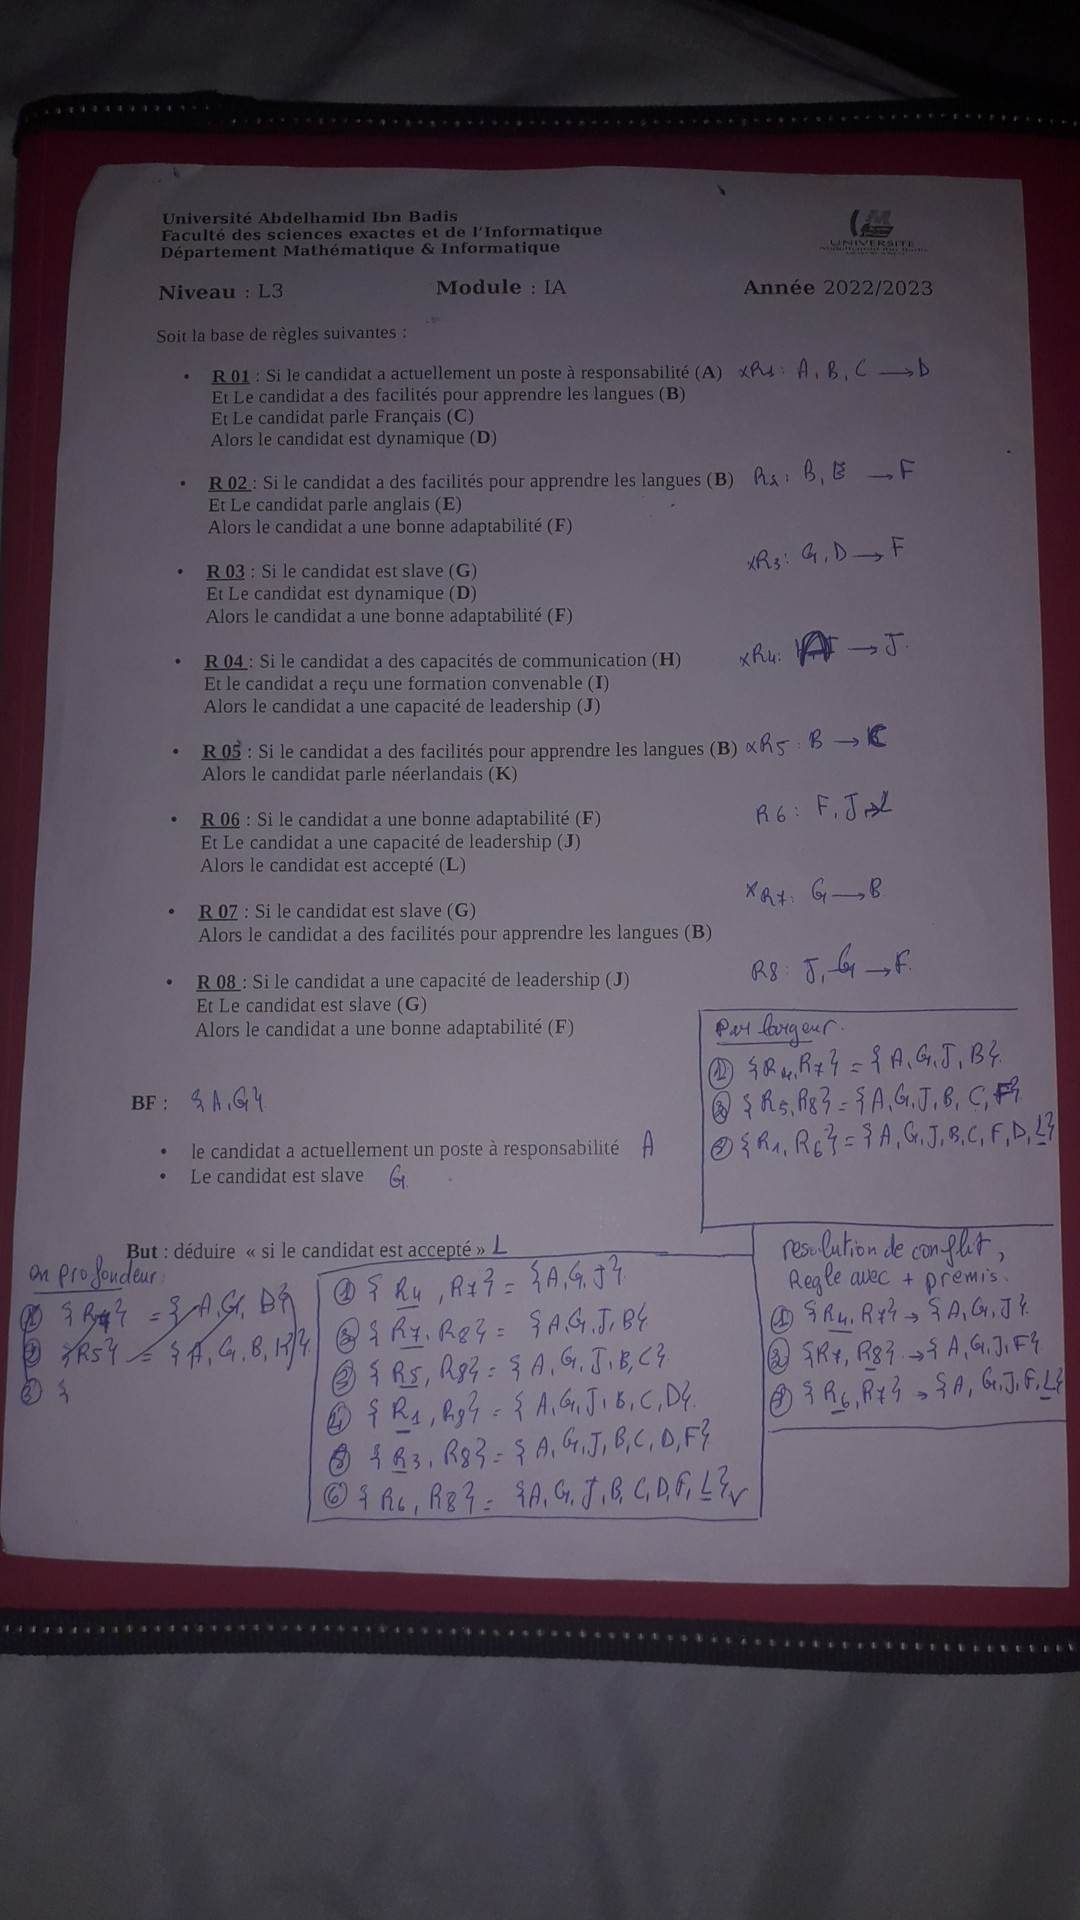 Université Abdelhamid Ibn Badis
Faculté des sciences exactes et de l'Informatique
Département Mathématique & Informatique
UNIVERSITE
Niveau : L3 Module : IA Année 2022/2023
Soit la base de règles suivantes :
• R 01 : Si le candidat a actuellement un poste à responsabilité (A) xR1: A, B, C → D
Et Le candidat a des facilités pour apprendre les langues (B)
Et Le candidat parle Français (C)
Alors le candidat est dynamique (D)
• R 02 : Si le candidat a des facilités pour apprendre les langues (B) R2: B, E → F
Et Le candidat parle anglais (E)
Alors le candidat a une bonne adaptabilité (F)
• R 03 : Si le candidat est slave (G) xR3: G, D → F
Et Le candidat est dynamique (D)
Alors le candidat a une bonne adaptabilité (F)
• R 04 : Si le candidat a des capacités de communication (H) xR4: A → J.
Et le candidat a reçu une formation convenable (I)
Alors le candidat a une capacité de leadership (J)
• R 05 : Si le candidat a des facilités pour apprendre les langues (B) xR5 : B → C
Alors le candidat parle néerlandais (K)
• R 06 : Si le candidat a une bonne adaptabilité (F) R6: F, J → L
Et Le candidat a une capacité de leadership (J)
Alors le candidat est accepté (L)
• R 07 : Si le candidat est slave (G) xR7: G → B
Alors le candidat a des facilités pour apprendre les langues (B)
• R 08 : Si le candidat a une capacité de leadership (J) R8: J, G → F.
Et Le candidat est slave (G)
Alors le candidat a une bonne adaptabilité (F)
Par largeur.
① {R4, R7} = {A, G, J, B}.
② {R5, R8} = {A, G, J, B, C, F}
③ {R1, R6} = {A, G, J, B, C, F, D, L}
BF : {A, G}
• le candidat a actuellement un poste à responsabilité A
• Le candidat est slave G.
But : déduire « si le candidat est accepté » L
en profondeur:
① {R7} = {A, G, B}
② {R5} = {A, G, B, K}.
③ {
① {R4, R7} = {A, G, J}.
② {R7, R8} = {A, G, J, B}.
③ {R5, R8} = {A, G, J, B, C}.
④ {R1, R8} = {A, G, J, B, C, D}.
⑤ {R3, R8} = {A, G, J, B, C, D, F}.
⑥ {R6, R8} = {A, G, J, B, C, D, F, L} ✓
resolution de conflit,
Regle avec + premis.
① {R4, R7} → {A, G, J}.
② {R7, R8} → {A, G, J, F}
③ {R6, R7} → {A, G, J, F, L}